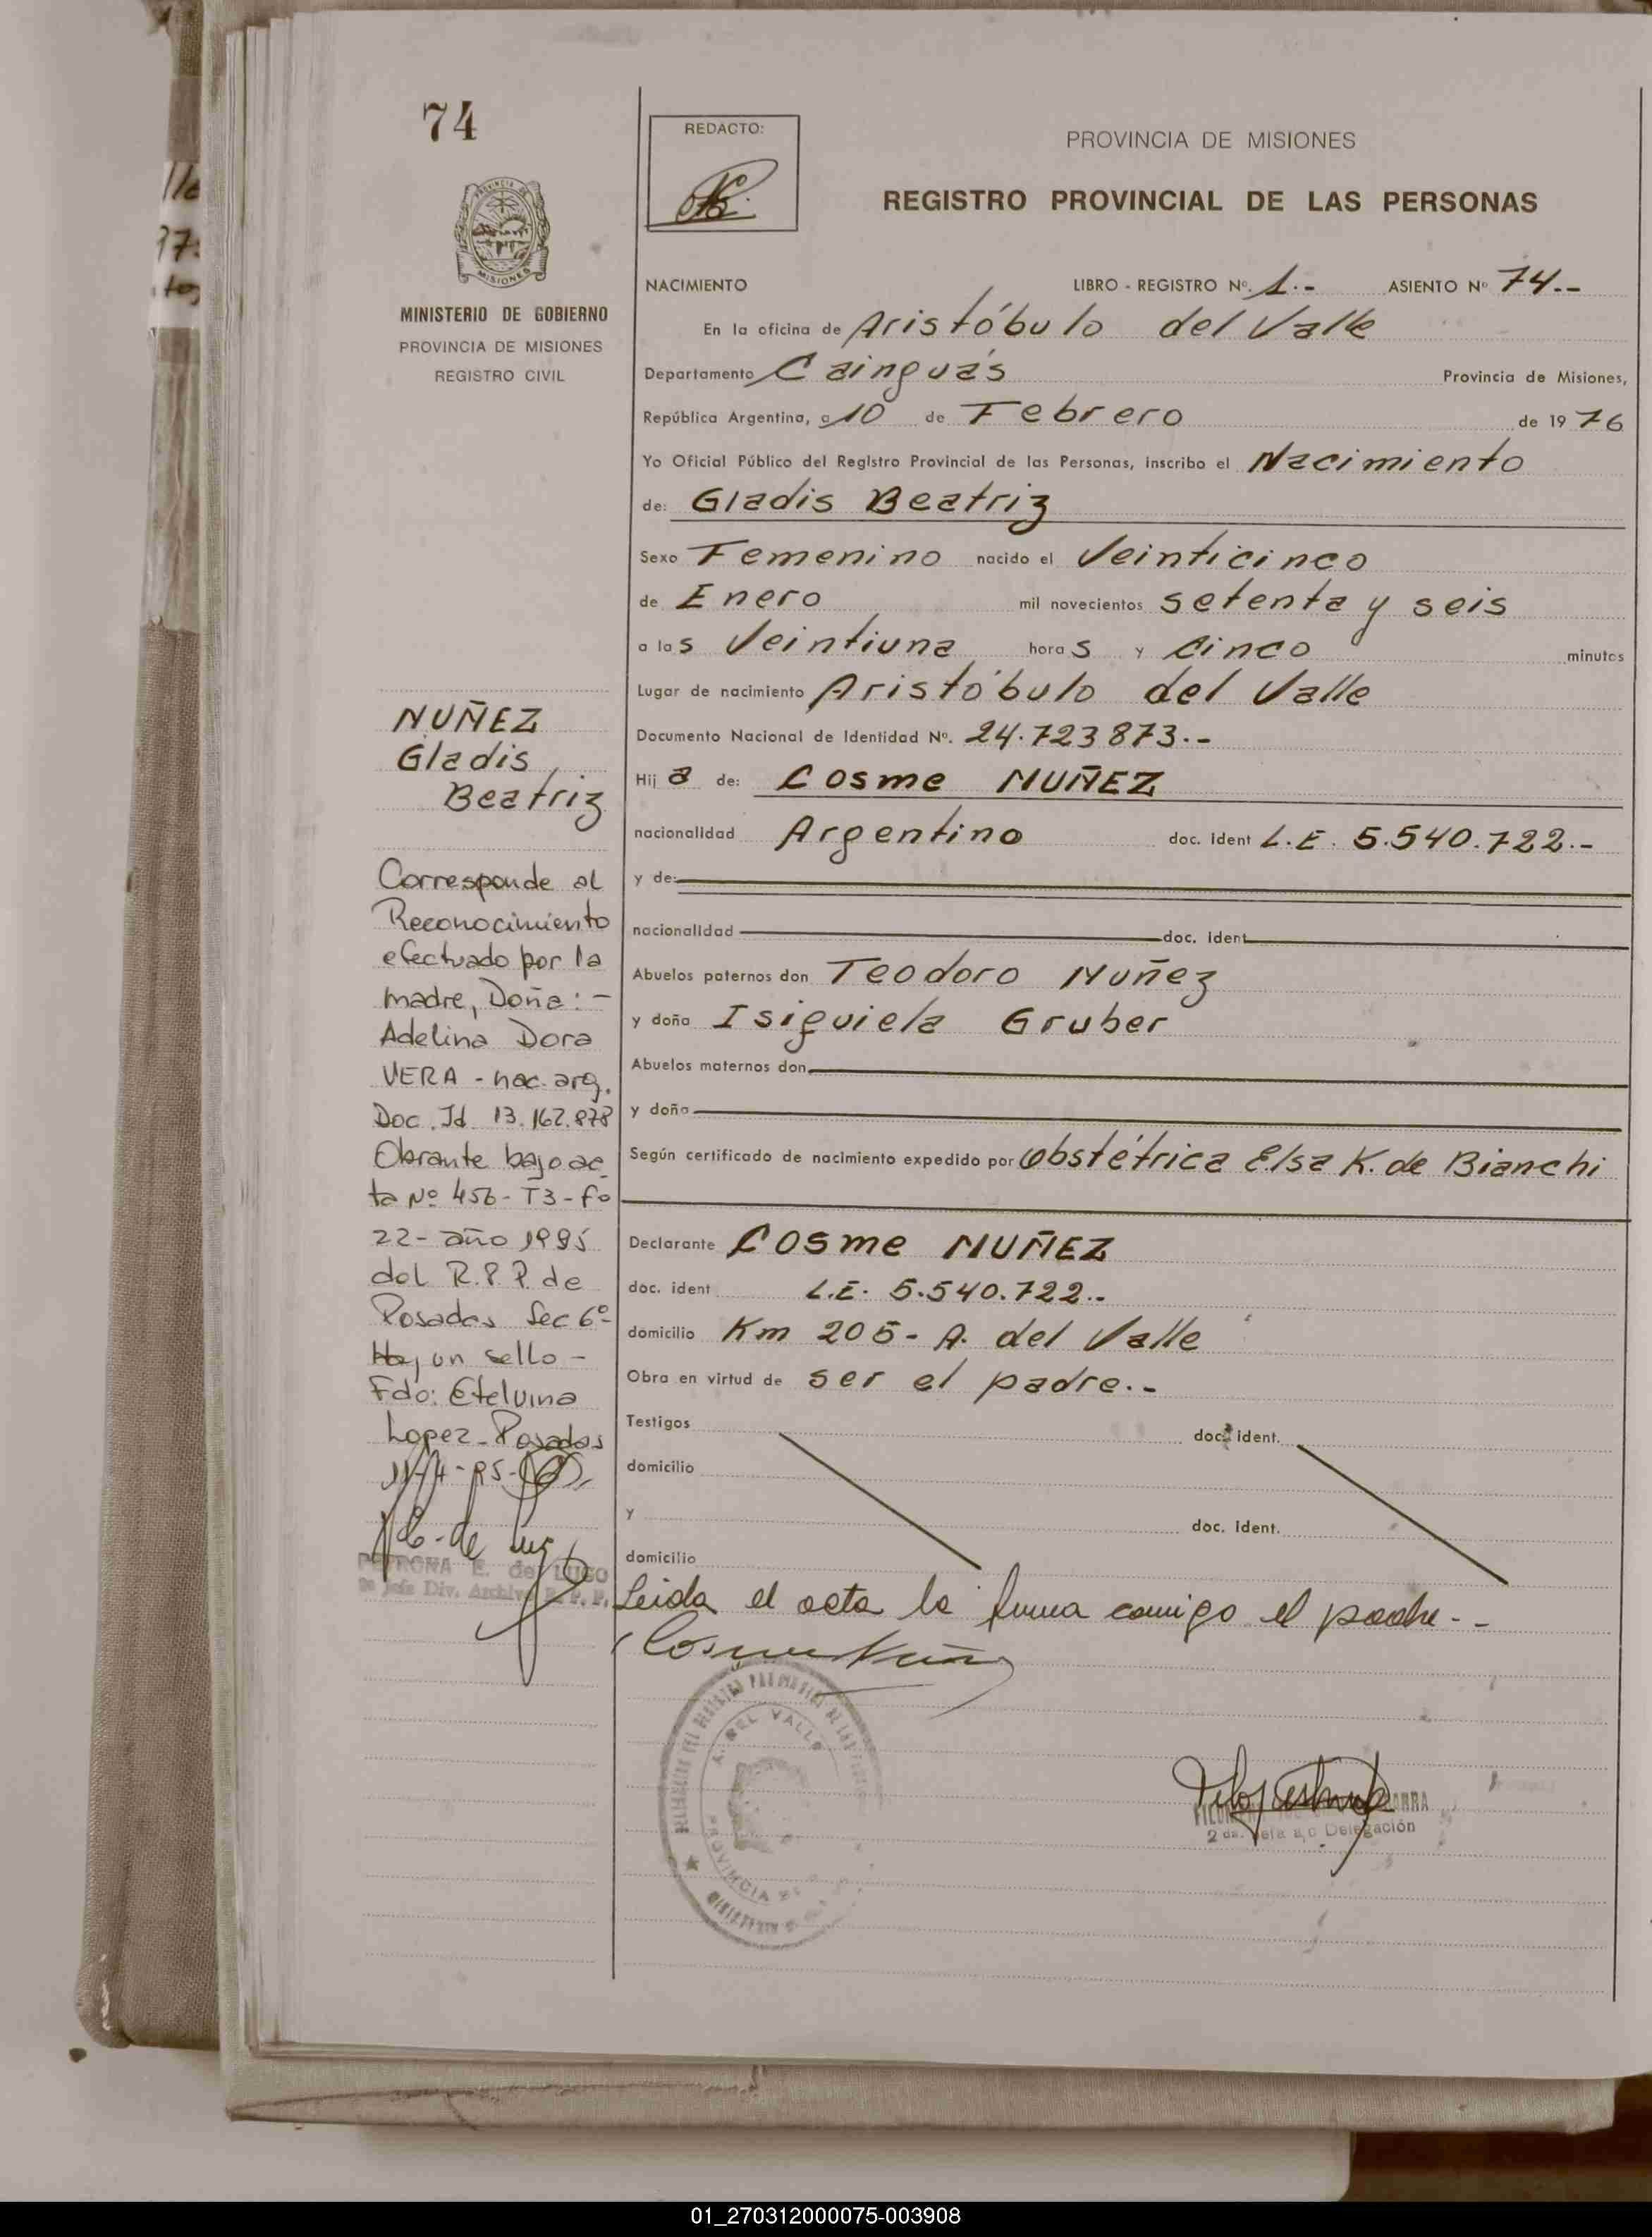 74
MISIONES
MINISTERIO DE GOBIERNO
PROVINCIA DE MISIONES
REGISTRO CIVIL
NUÑEZ
Gladis
Beatriz
Corresponde al
Reconocimiento
efectuado por la
madre, Doña: -
Adelina Dora
VERA - nac. arg.
Doc. Id 13.162.878
Obrante bajo ac-
ta Nº 456 - T3 - Fº
22 - año 1995
del R.P.P. de
Posadas Sec 6º
Hay un sello -
Fdo: Etelvina
Lopez - Posadas
PETRONA E. de LUGO
Jefe Div. Archivo R. P. P.
REDACTO:
PROVINCIA DE MISIONES
REGISTRO PROVINCIAL DE LAS PERSONAS
NACIMIENTO LIBRO - REGISTRO Nº. 1.- ASIENTO Nº 74.-
En la oficina de Aristóbulo del Valle
Departamento Cainguás Provincia de Misiones,
República Argentina, a 10 de Febrero de 1976
Yo Oficial Público del Registro Provincial de las Personas, inscribo el Nacimiento
de: Gladis Beatriz
Sexo Femenino nacido el Veinticinco
de Enero mil novecientos setenta y seis
a las Veintiuna horas y cinco minutos
Lugar de nacimiento Aristóbulo del Valle
Documento Nacional de Identidad Nº. 24.723873.-
Hija de: Cosme NUÑEZ
nacionalidad Argentino doc. ident L.E. 5.540.722.-
y de:
nacionalidad doc. ident
Abuelos paternos don Teodoro Nuñez
y doña Isiguiela Gruber
Abuelos maternos don
y doña
Según certificado de nacimiento expedido por obstétrica Elsa K. de Bianchi
Declarante Cosme NUÑEZ
doc. ident L.E. 5.540.722.-
domicilio Km 205 - A. del Valle
Obra en virtud de ser el padre.-
Testigos doc. ident.
domicilio
y doc. ident.
domicilio
Leida el acta la firma conmigo el padre.-
Cosme Nuñez
A. DEL VALLE
2 da. Jefa a/c Delegación
01_270312000075-003908